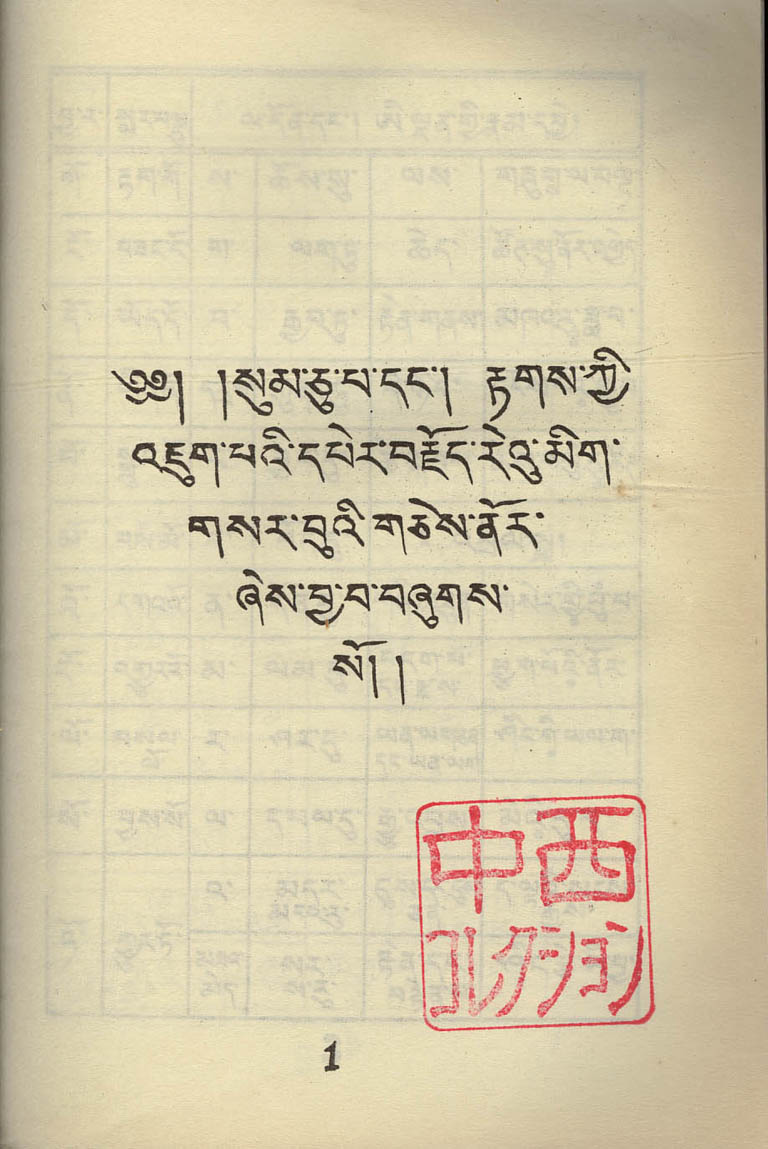 ༄༅། །སུམ་ཅུ་པ་དང་། རྟགས་ཀྱི
འཇུག་པའི་དཔེར་བརྗོད་རེའུ་མིག་
གསར་བུའི་གཅེས་ནོར་
ཞེས་བྱ་བ་བཞུགས་
སོ། །
中西
1